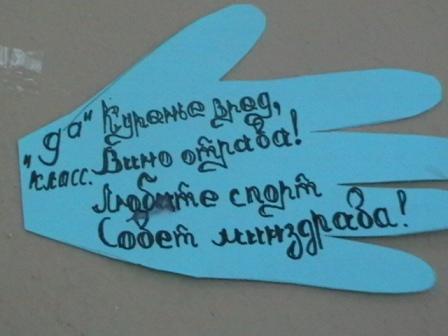 "9а" класс.
Куренье вред,
Вино отрава!
Любите спорт
Совет минздрава!